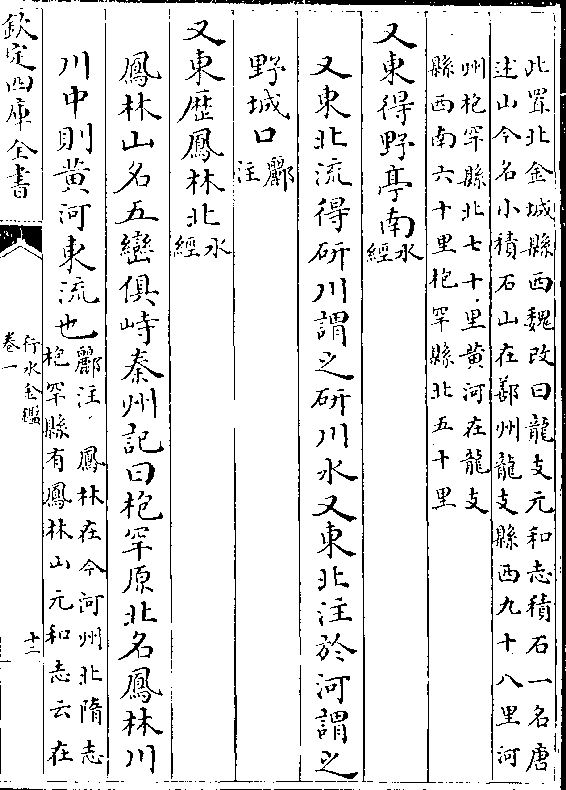 此置北金城縣西魏改曰龍支元和志積石一名唐
述山今名小積石山在鄯州龍支縣西九十八里河
州枹罕縣北七十里黄河在龍支
縣西南六十里枹罕縣北五十里
又東得野亭南水經
又東北流得研川謂之研川水又東北注於河謂之
野城口酈注
又東歴鳳林北水經
鳳林山名五巒俱峙秦州記曰枹罕原北名鳳林川
川中則黄河東流也酈注鳳林在今河州北隋志
枹罕縣有鳳林山元和志云在
欽定四庫全書
行水金鑑
卷一
十二